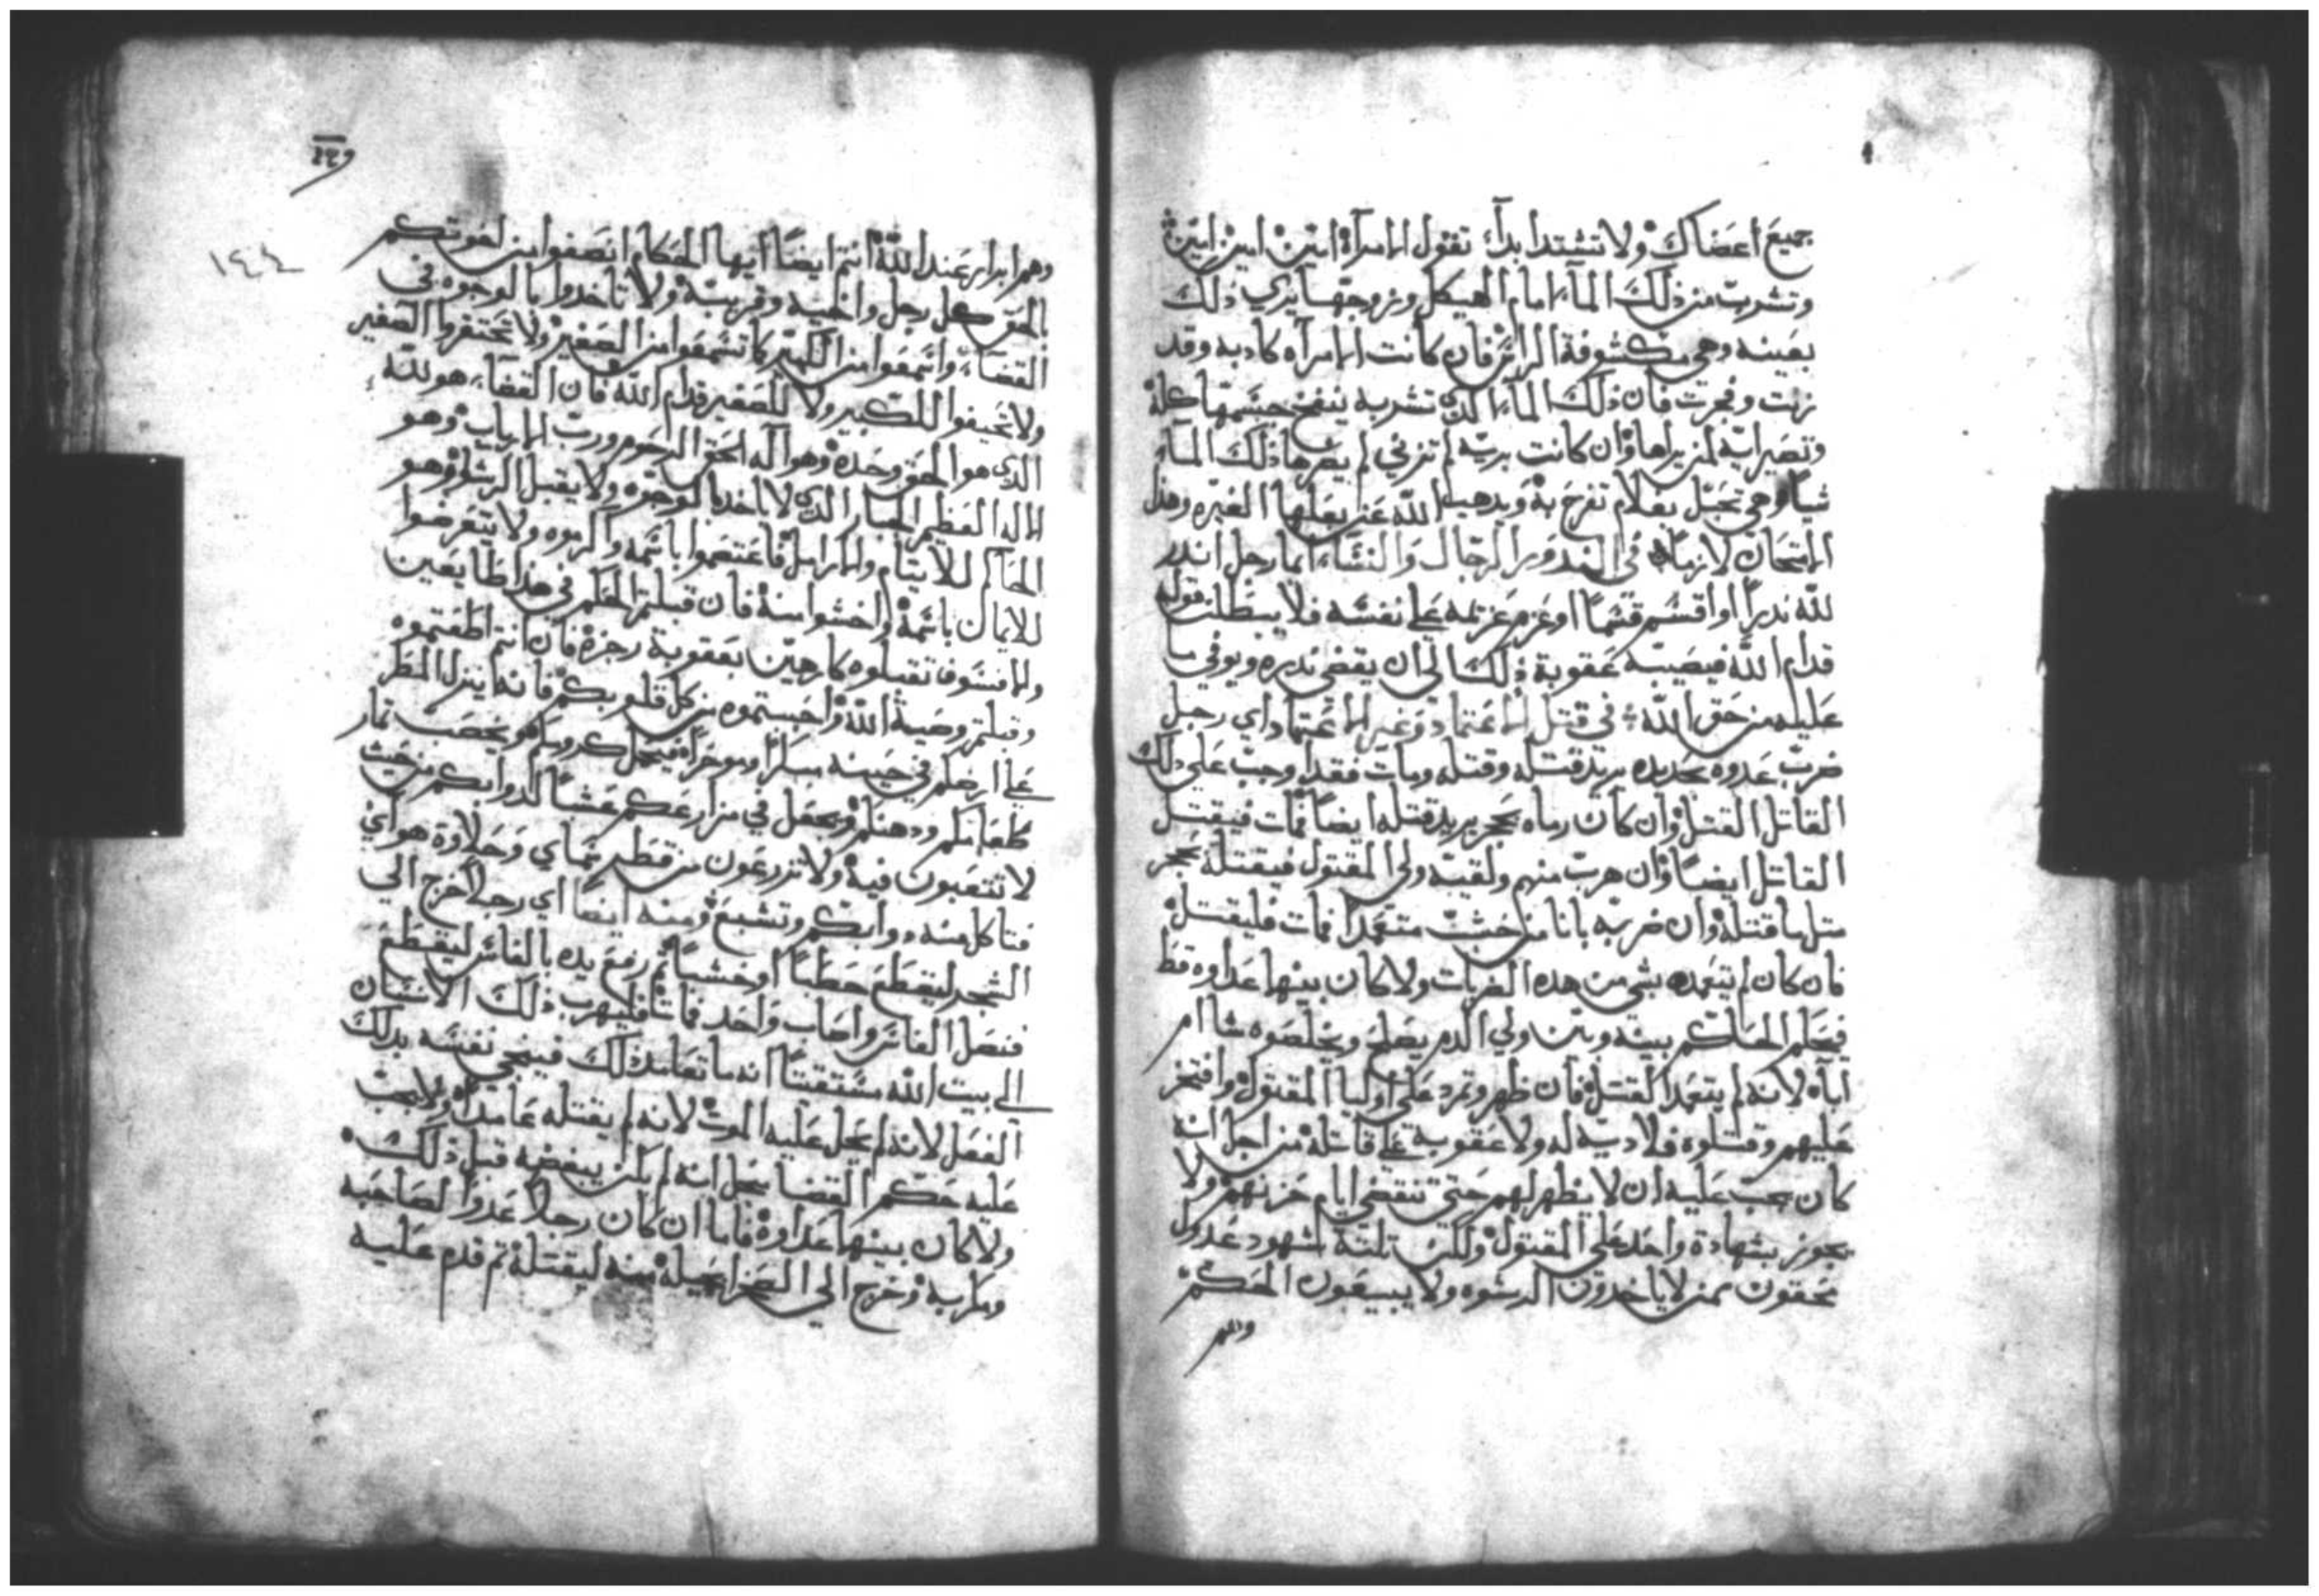 جميع اعضاك ولا تشتد ابداً، تقول الامراة امين امين امين
وتشرب من ذلك الماء امام الهيكل وزوجها يري ذلك
بعينه وهي مكشوفة الراس فان كانت الامراه كادبه وقد
زنت وفجرت فان ذلك الماء الدي تشربه ينفخ جسمها كله
وتصير ايه لمن يراها وان كانت بريه لم تزني لم يضرها ذلك الماء
شياً وهي تحبل بغلام تفرح به ويدهب الله عن بعلها الغيره وهذا
الامتحان لازماً في الندور الرجال والنساء ايما رجل اندر
لله ندراً او اقسم قسماً او عزم عزيمه علي نفسه فلا يبطلن قوله
قدام الله فيصيبه عقوبة ذلك الي ان يقضي ندره ويوفي ما
عليه من حق الله في قتل الاعتماد وغير الاعتماد اي رجل
ضرب عدوه بحديده يريد قتله وقتله ومات فقد اوجب علي دلك
القاتل القتل وان كان رماه بحجر يريد قتله ايضاً فمات فيقتل
القاتل ايضاً وان هرب منهم ولقيه ولي المقتول فيقتله بحجر
متل ما قتله وان ضربه بانا من خشب متعمداً فمات فليقتل
فان كان لم يتعمده بشي من هده الضربات ولا كان بينهما عداوه قط
فيحكم الحاكم بينه وبين ولي الدم يصلح ويخلصوه شا ام
اباه لانه لم يتعمد القتل فان ظهر وتمرد علي اوليا المقتول وافتخر
عليهم وقتلوه فلا ديه له ولا عقوبة علي قاتله من اجل انه
كان يجب عليه ان لا يظهر لهم حتي تنقضي ايام حزنهم ولا
يجوز بشهادة واحد علي المقتول ولكن تلتة شهود عدول
محقون ممن لا ياخدون الرشوه ولا يبيعون الحكم
وهم
١٤٤
وهم ابرار عند الله انتم ايضاً ايها الحكام انصفوا من اخوتكم
بالحق كل رجل واخيه وقريبه ولا تاخدوا بالوجوه في
القضاء، واسمعوا من الكبير كما تسمعوا من الصغير ولا تحتقروا الصغير
ولا تحيفوا للكبير ولا للصغير قدام الله فان القضاء هو لله
الدي هو الحق وحده وهو اله الحق الرحوم ورب الارباب وهو
الاله العظيم الجبار الدي لا ياخد بالوجوه ولا يقبل الرشا وهو
الحاكم للايتام والارامل فاعتصموا باسمه واكرموه ولا يتعرضوا
للايمان باسمه واخشوا منه فان قبلتم الحكم في هذا طايعين
والا فسوف تقبلوه كارهين بعقوبة رجزه فان انتم اطعتموه
وقبلتم وصية الله واحببتموه من كل قلوبكم فانه ينزل المطر
علي ارضكم في حينه مبكراً وموخراً فيحمل كرومكم ويخصب تمار
طعامكم ودهنكم ويجعل في مزارعكم عشباً لدوابكم من حيث
لا تتعبون فيه ولا تزرعون من قطر سماي وحلاوة هواي
فتاكل منه دوابكم وتشبع ومنه ايضا اي رجلاً خرج الي
الشجر ليقطع حطباً او خشباً ثم رفع يده بالفاس ليقطع
فنصل الفاس واصاب واحد فمات فليهرب ذلك الانسان
الي بيت الله مستغيتاً انه ما تعامد ذلك فينجي نفسه بدلك
الفعل لانه لم يحل عليه الموت لانه لم يقتله عامداً ولا يجب
عليه حكم القضا بحل انه لم يكن يبغضه قبل ذلك
ولا كان بينهما عداوة فاما ان كان رجلاً عدواً لصاحبه
ومكر به وخرج الي الصحرا بحيلة منه ليقتله ثم قدم عليه